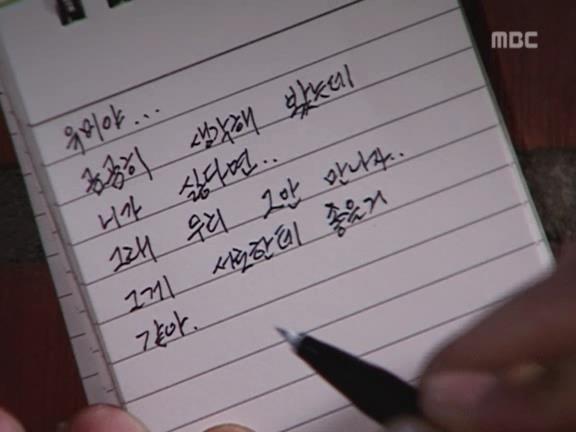 MBC
유미야...
곰곰히 생각해 봤는데
니가 싫다면..
그래 우리 그만 만나자..
그게 서로한테 좋을거
같아.